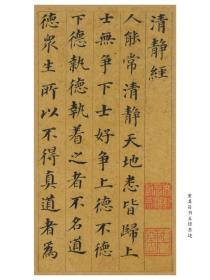 清靜經
人能常清靜天地悉皆歸上
士無爭下士好爭上德不德
下德執德執着之者不名道
德眾生所以不得真道者為